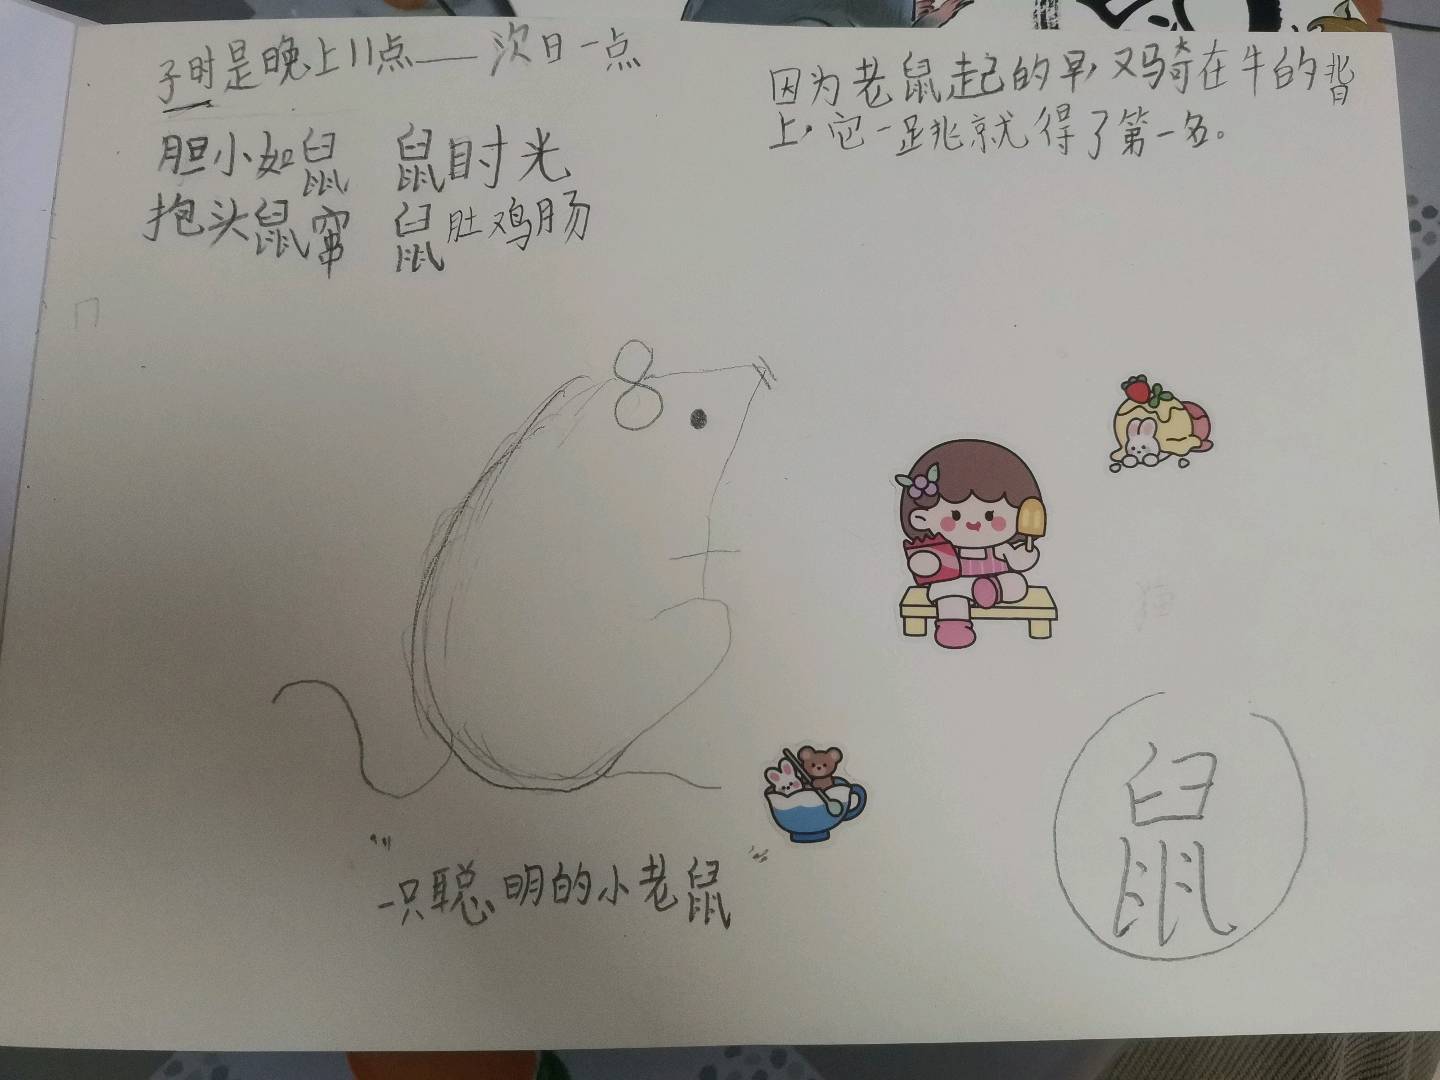 子时是晚上11点——次日一点
胆小如鼠 鼠时光
抱头鼠窜 鼠肚鸡肠
因为老鼠起的早,又骑在牛的背
上,它一跳就得了第一名。
"一只聪明的小老鼠"
鼠